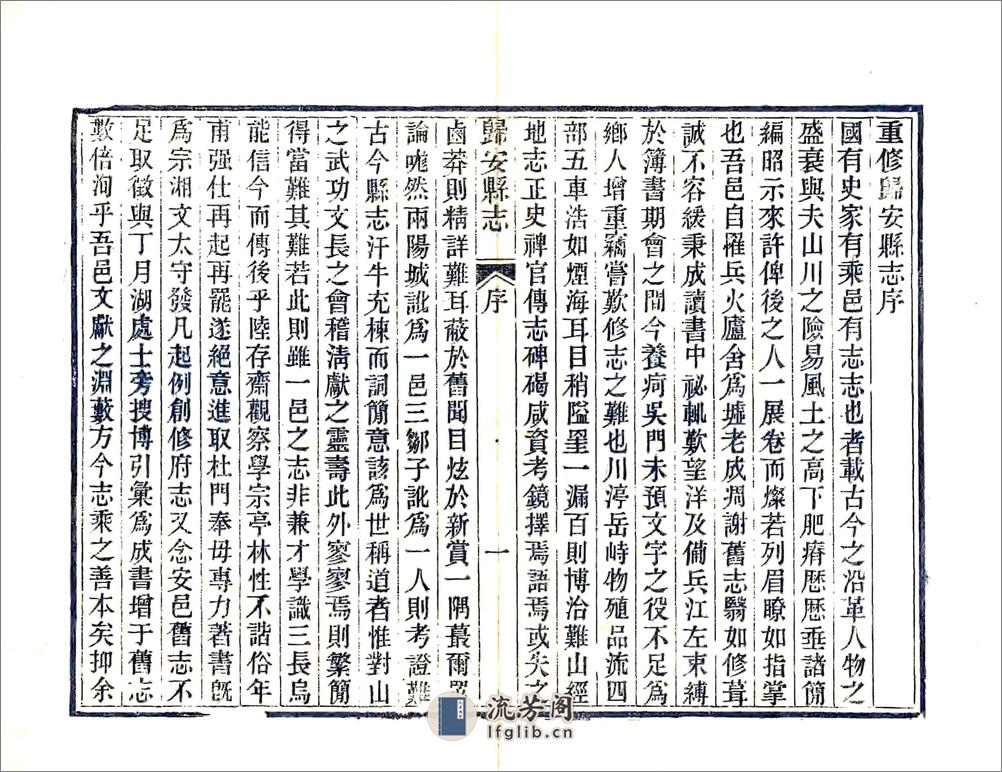 重修歸安縣志序
國有史家有乘邑有志志也者載古今之沿革人物之
盛衰與夫山川之險易風土之高下肥瘠歷歷垂諸簡
編昭示來許俾後之人一展卷而燦若列眉瞭如指掌
也吾邑自罹兵火廬舍爲墟老成凋謝舊志翳如修葺
誠不容緩秉成讀書中祕輒歎望洋及備兵江左束縛
於簿書期會之間今養疴吳門未預文字之役不足爲
鄉人增重竊嘗歎修志之難也川渟岳峙物殖品流四
部五車浩如煙海耳目稍隘皇一漏百則博洽難山經
地志正史稗官傳志碑碣咸資考鏡擇焉語焉或失之
歸安縣志 序 一
鹵莽則精詳難耳蔽於舊聞目炫於新賞一隅蕞爾眾
論嘵然兩陽城訛爲一邑三鄒子訛爲一人則考證難
古今縣志汗牛充棟而詞簡意該爲世稱道者惟對山
之武功文長之會稽淸獻之靈壽此外寥寥焉則繁簡
得當難其難若此則雖一邑之志非兼才學識三長烏
能信今而傳後乎陸存齋觀察學宗亭林性不諧俗年
甫强仕再起再罷遂絕意進取杜門奉母專力著書旣
爲宗湘文太守發凡起例創修府志又念安邑舊志不
足取徵與丁月湖處士旁搜博引彙爲成書增于舊志
數倍洵乎吾邑文獻之淵藪方今志乘之善本矣抑余
流芳阁
lfglib.cn